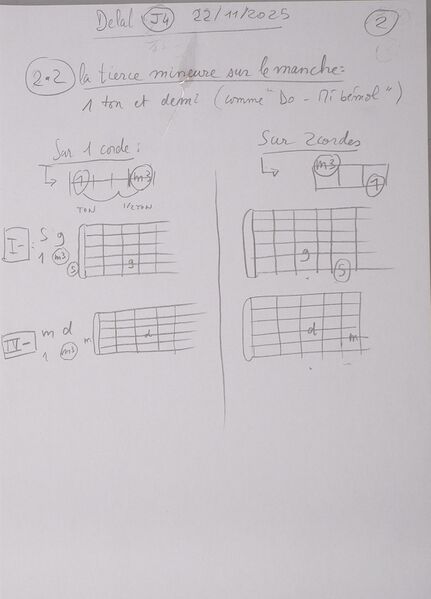 Delal J4 22/11/2025 2
2.2 la tierce mineure sur le manche:
1 ton et demi (comme "Do - Mi bémol")
Sur 1 corde:
1 m3
TON 1/2 TON
I- : S g
1 m3
S g
IV- m d
1 m3
m d
Sur 2 cordes
m3
1
g
S
d
m